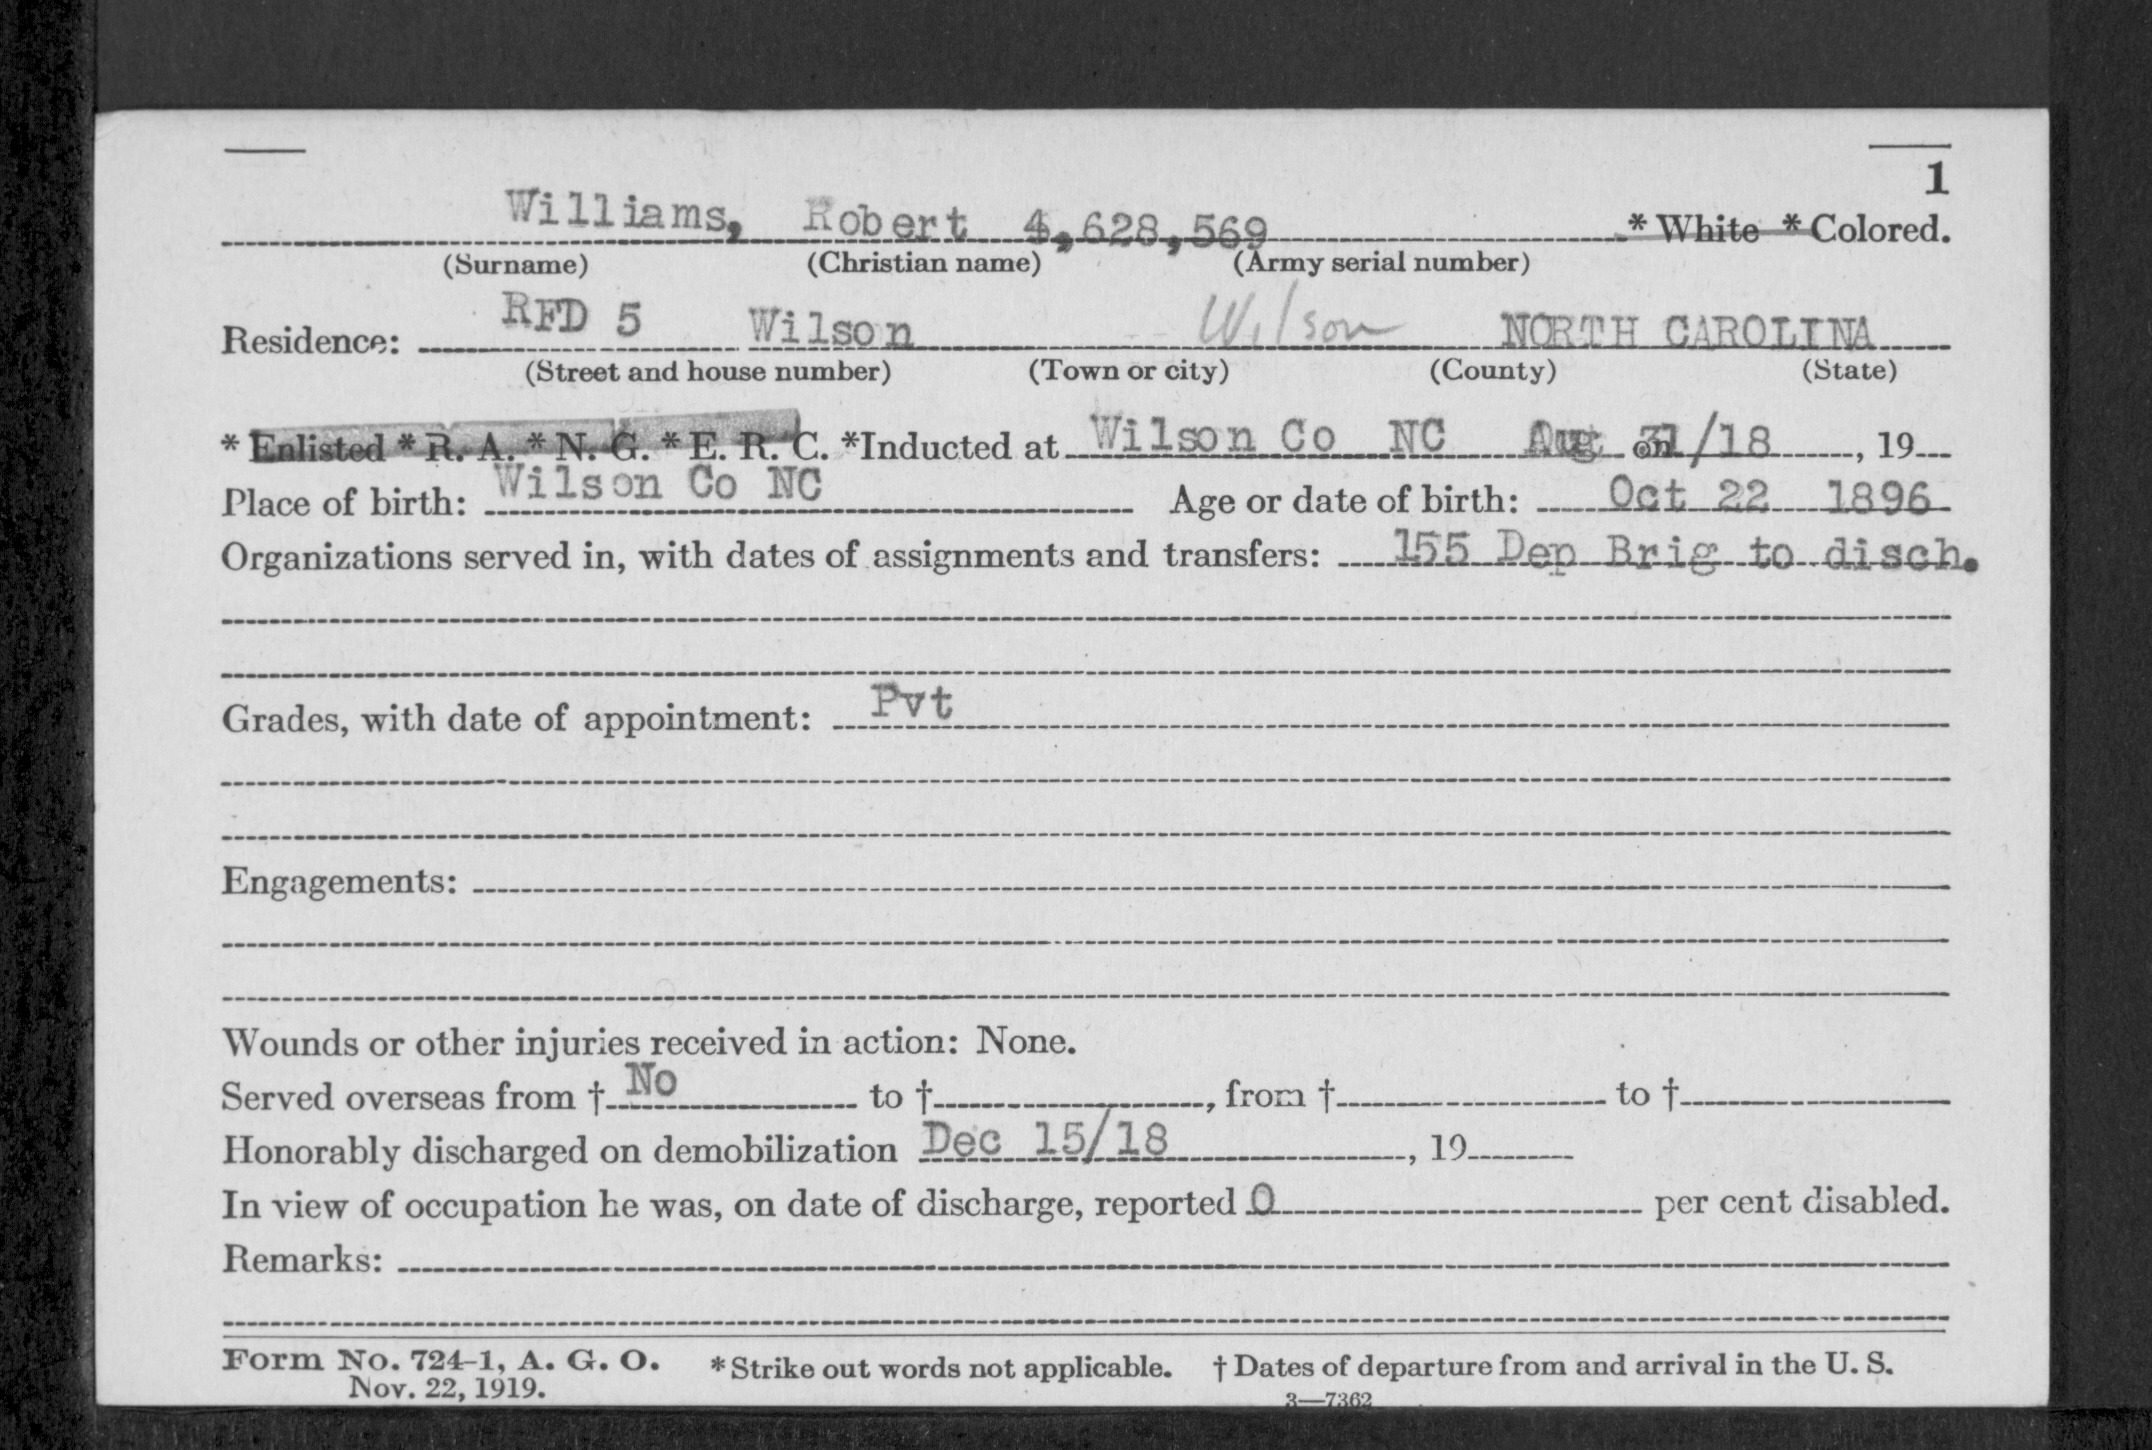 1
Williams, Robert 4,628,569 * White * Colored.
(Surname) (Christian name) (Army serial number)
Residence: RFD 5 Wilson Wilson NORTH CAROLINA
(Street and house number) (Town or city) (County) (State)
* Enlisted * R. A. * N. G. * E. R. C. *Inducted at Wilson Co NC Aug on 31/18, 19
Place of birth: Wilson Co NC Age or date of birth: Oct 22 1896
Organizations served in, with dates of assignments and transfers: 155 Dep Brig to disch.
Grades, with date of appointment: Pvt
Engagements:
Wounds or other injuries received in action: None.
Served overseas from † No to †, from † to †
Honorably discharged on demobilization Dec 15/18, 19
In view of occupation he was, on date of discharge, reported 0 per cent disabled.
Remarks:
Form No. 724-1, A. G. O. * Strike out words not applicable. † Dates of departure from and arrival in the U. S.
Nov. 22, 1919.
3—7362